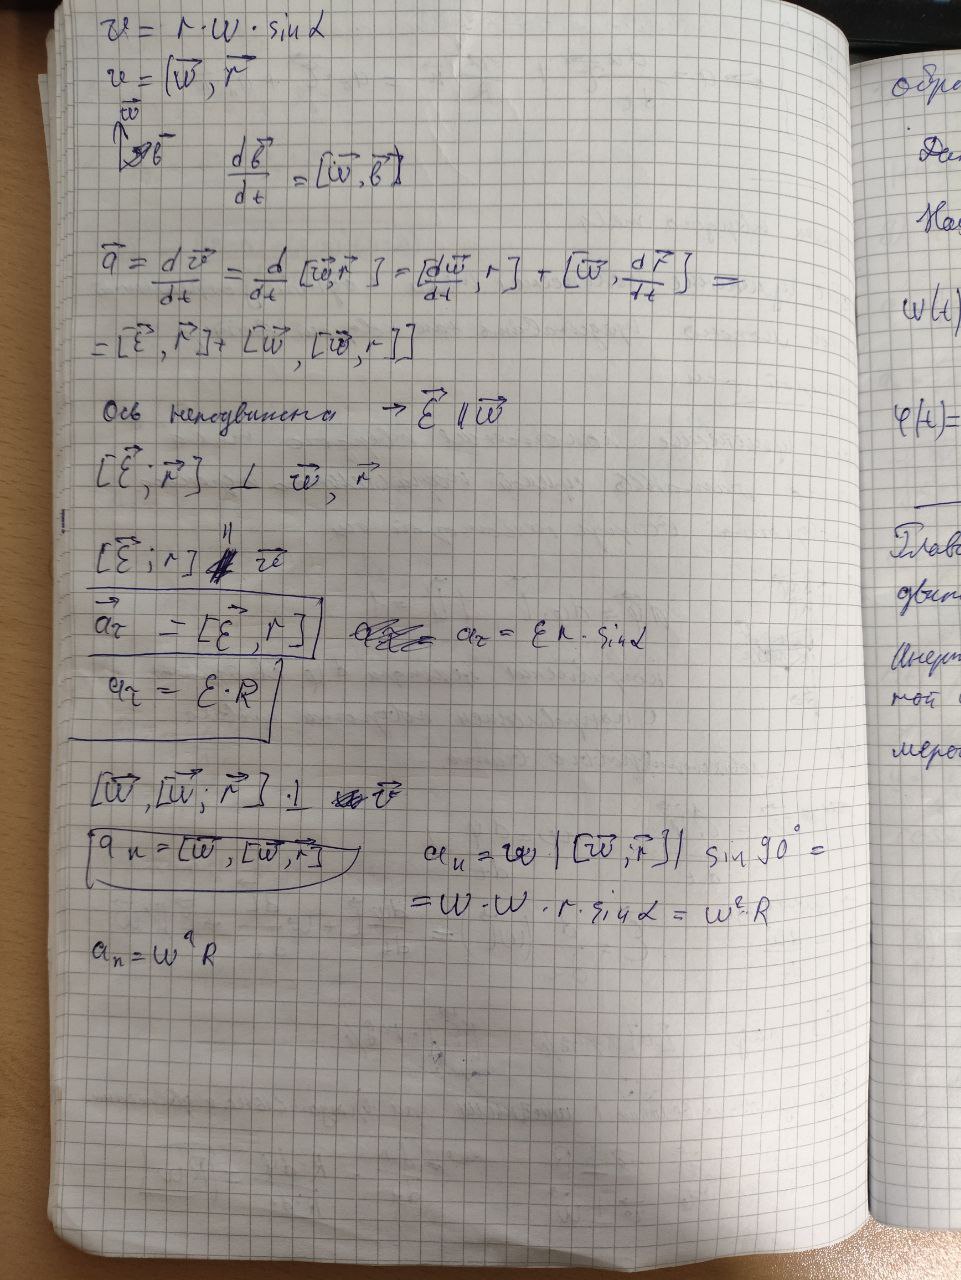 v = r · w · sin α
v = [w⃗, r⃗
w⃗
b⃗
db⃗/dt = [w⃗, b⃗]
a⃗ = dv⃗/dt = d/dt [w⃗, r⃗] = [dw⃗/dt, r] + [w⃗, dr⃗/dt] =
= [ε⃗, r⃗] + [w⃗, [w⃗, r]]
Ось неподвижна → ε⃗ || w⃗
[ε⃗; r⃗] ⊥ w⃗, r⃗
[ε⃗; r] || v⃗
a⃗τ = [ε⃗, r] aτ = ε r · sin α
aτ = ε · R
[w⃗, [w⃗; r⃗] ⊥ v⃗
an = [w⃗, [w⃗, r⃗] an = w |[w⃗; r⃗]| sin 90° =
= w · w · r · sin α = w² R
an = w² R
обра
Да
На
w(t)
φ(t) =
Глав
дви
Инер
ной
меро